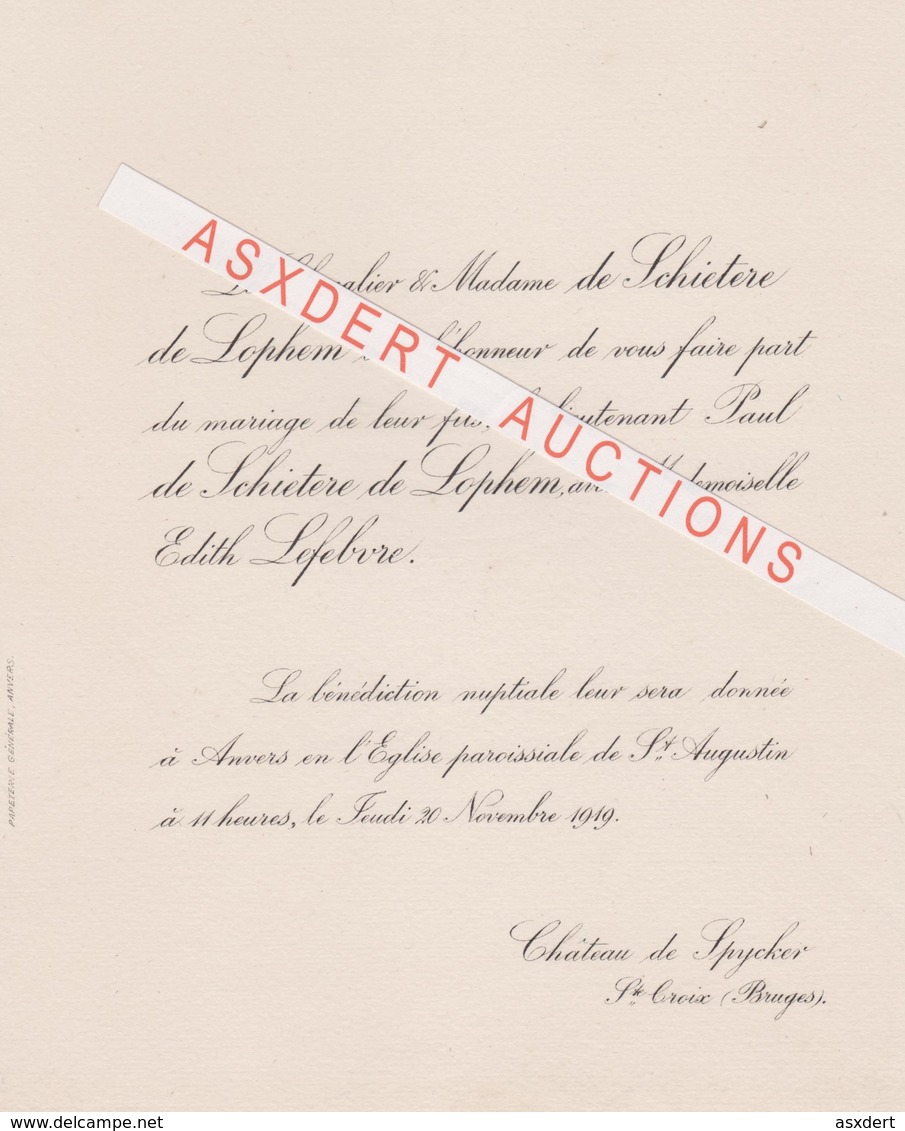 & Madame de Schietere
de Lophem l'honneur de vous faire part
du mariage de leur fils, Lieutenant Paul
de Schietere de Lophem, Mademoiselle
Edith Lefebvre.
La bénédiction nuptiale leur sera donnée
à Anvers en l'Eglise paroissiale de St. Augustin
à 11 heures, le Jeudi 20 Novembre 1919.
Château de Spycker
Ste Croix (Bruges).
PAPETERIE GÉNÉRALE, ANVERS.
ASXDERT AUCTIONS
www.delcampe.net
asxdert